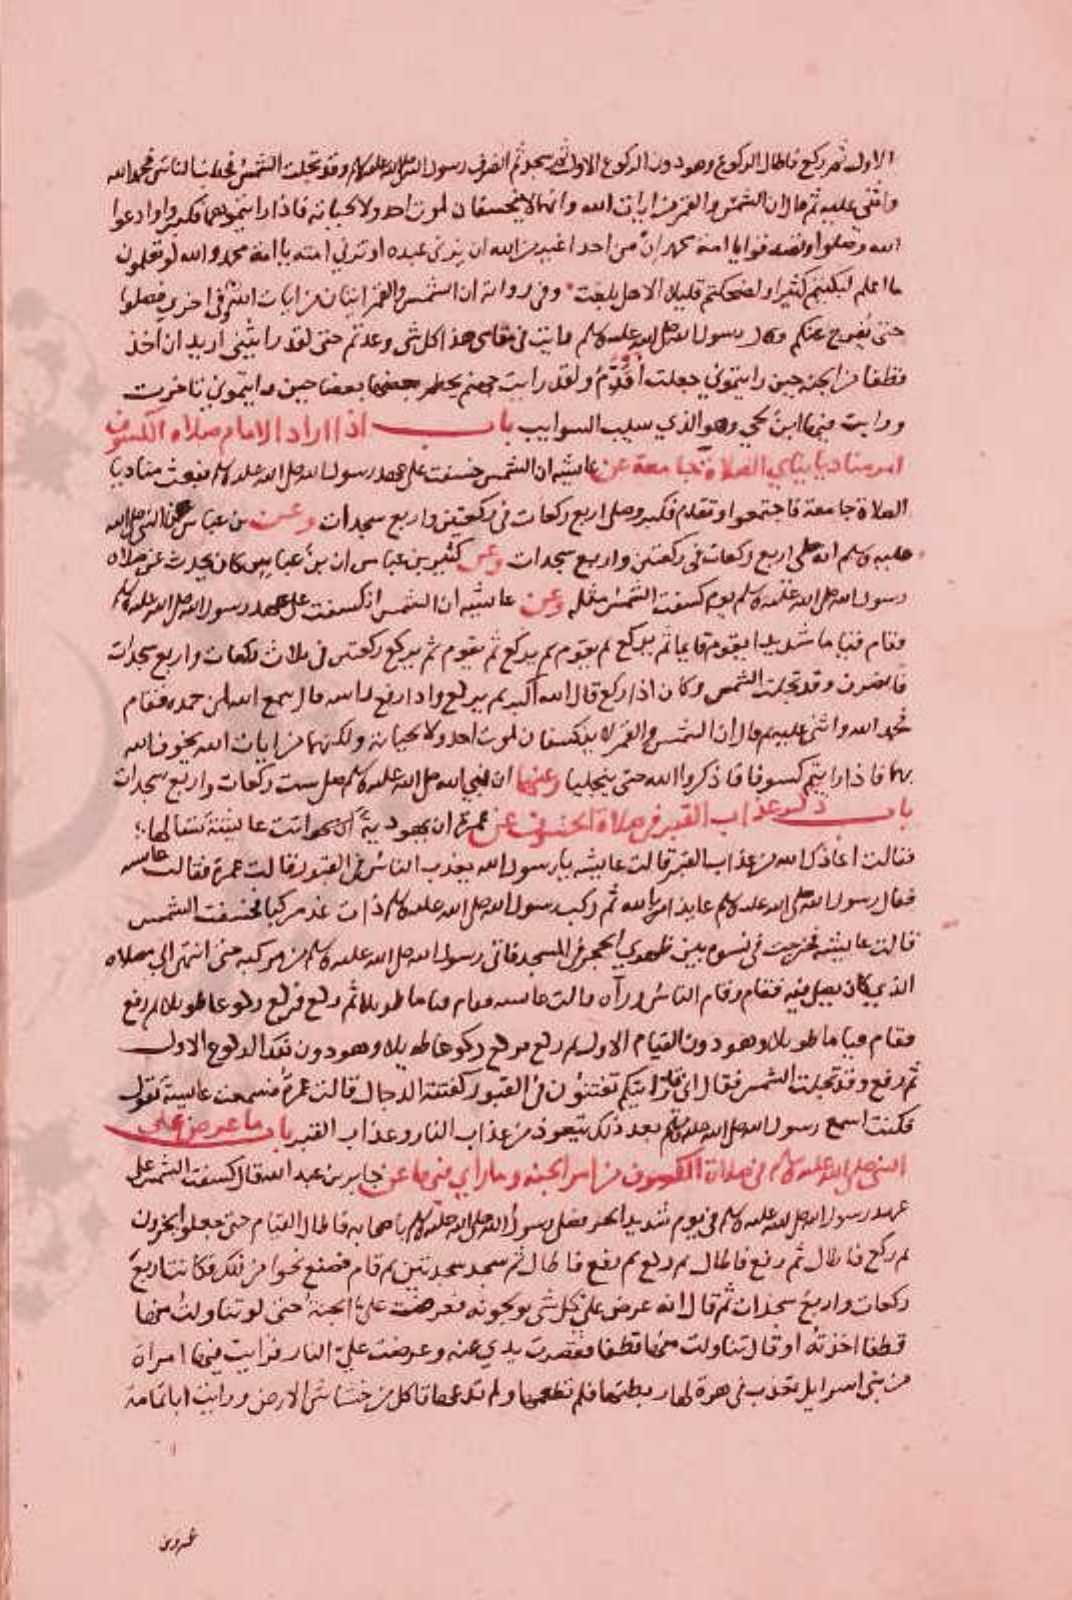 الاول ثم ركع فاطال الركوع وهو دون الركوع الاول ثم سجد ثم انصرف رسول الله صلى الله عليه وسلم وقد تجلت الشمس فخطب الناس فحمد الله
واثنى عليه ثم قال ان الشمس والقمر من ايات الله وانهما لا ينخسفان لموت احد ولا لحياته فاذا رايتموهما فكبروا وادعوا
الله وصلوا وتصدقوا يا امة محمد ان من احد اغير من الله ان يزني عبده او تزني امته يا امة محمد والله لو تعلمون
ما اعلم لبكيتم كثيرا ولضحكتم قليلا الا هل بلغت وفي رواية ان الشمس والقمر ايتان من ايات الله وفي اخرى فصلوا
حتى يفرج عنكم وقال رسول الله صلى الله عليه وسلم رايت في مقامي هذا كل شي وعدتم حتى لقد رايتني اريد ان اخذ
قطفا من الجنة حين رايتموني جعلت اقدم ولقد رايت جهنم يحطم بعضها بعضا حين رايتموني تاخرت
ورايت فيها ابن لحي وهو الذي سيب السوايب باب اذا اراد الامام صلاة الكسوف
امر مناديا ينادي الصلاة جامعة عن عايشه ان الشمس خسفت على عهد رسول الله صلى الله عليه وسلم فبعث مناديا
الصلاة جامعة فاجتمعوا وتقدم فكبر وصلى اربع ركعات في ركعتين واربع سجدات وعن بن عباس عن النبي صلى الله
عليه وسلم انه صلى اربع ركعات في ركعتين واربع سجدات وعن كثير بن عباس ان بن عباس كان يحدث عن صلاة
رسول الله صلى الله عليه وسلم يوم كسفت الشمس مثله وعن عايشه ان الشمس انكسفت على عهد رسول الله صلى الله عليه وسلم
فقام قياما شديدا يقوم قايما ثم يركع ثم يقوم ثم يركع ثم يقوم ثم يركع ركعتين في ثلاث ركعات واربع سجدات
فانصرف وقد تجلت الشمس وكان اذا ركع قال الله اكبر ثم يركع واذا رفع راسه قال سمع الله لمن حمده فقام
فحمد الله واثنى عليه ثم قال ان الشمس والقمر لا ينكسفان لموت احد ولا لحياته ولكنهما من ايات الله يخوف الله
بهما فاذا رايتم كسوفا فاذكروا الله حتى ينجليا وعنها ان نبي الله صلى الله عليه وسلم صلى ست ركعات واربع سجدات
باب ذكر عذاب القبر في صلاة الخسوف عن عمرة ان يهودية اتت عايشة تسالها
فقالت اعاذك الله من عذاب القبر قالت عايشه يا رسول الله يعذب الناس في القبور قالت عمرة فقالت عايشه
فقال رسول الله صلى الله عليه وسلم عايذا بالله ثم ركب رسول الله صلى الله عليه وسلم ذات غد مركبا فخسفت الشمس
قالت عايشه فخرجت في نسوه بين ظهري الحجر في المسجد فاتى رسول الله صلى الله عليه وسلم من مركبه حتى انتهى الى مصلاه
الذي كان يصلي فيه فقام وقام الناس وراه قالت عايشه فقام قياما طويلا ثم ركع فركع ركوعا طويلا ثم رفع
فقام قياما طويلا وهو دون القيام الاول ثم ركع فركع ركوعا طويلا وهو دون ذلك الركوع الاول
ثم رفع وقد تجلت الشمس فقال اني قد رايتكم تفتنون في القبور كفتنة الدجال قالت عمرة فسمعت عايشة تقول
فكنت اسمع رسول الله صلى الله عليه وسلم بعد ذلك يتعوذ من عذاب النار وعذاب القبر باب ما عرض على
النبي صلى الله عليه وسلم في صلاة الكسوف من امر الجنه وما راي فيها عن جابر بن عبد الله قال كسفت الشمس على
عهد رسول الله صلى الله عليه وسلم في يوم شديد الحر فصلى رسول الله صلى الله عليه وسلم باصحابه فاطال القيام حتى جعلوا يخرون
ثم ركع فاطال ثم رفع فاطال ثم ركع ثم رفع فاطال ثم سجد سجدتين ثم قام فصنع نحوا من ذلك فكانت اربع
ركعات واربع سجدات ثم قال انه عرض علي كل شي توجونه فعرضت علي الجنة حتى لو تناولت منها
قطفا اخذته او قال تناولت منها قطفا فقصرت يدي عنه وعرضت علي النار فرايت فيها امراة
من بني اسرايل تعذب في هرة لها ربطتها فلم تطعمها ولم تدعها تاكل من خشاش الارض ورايت ابا ثمامة
عمرو بن